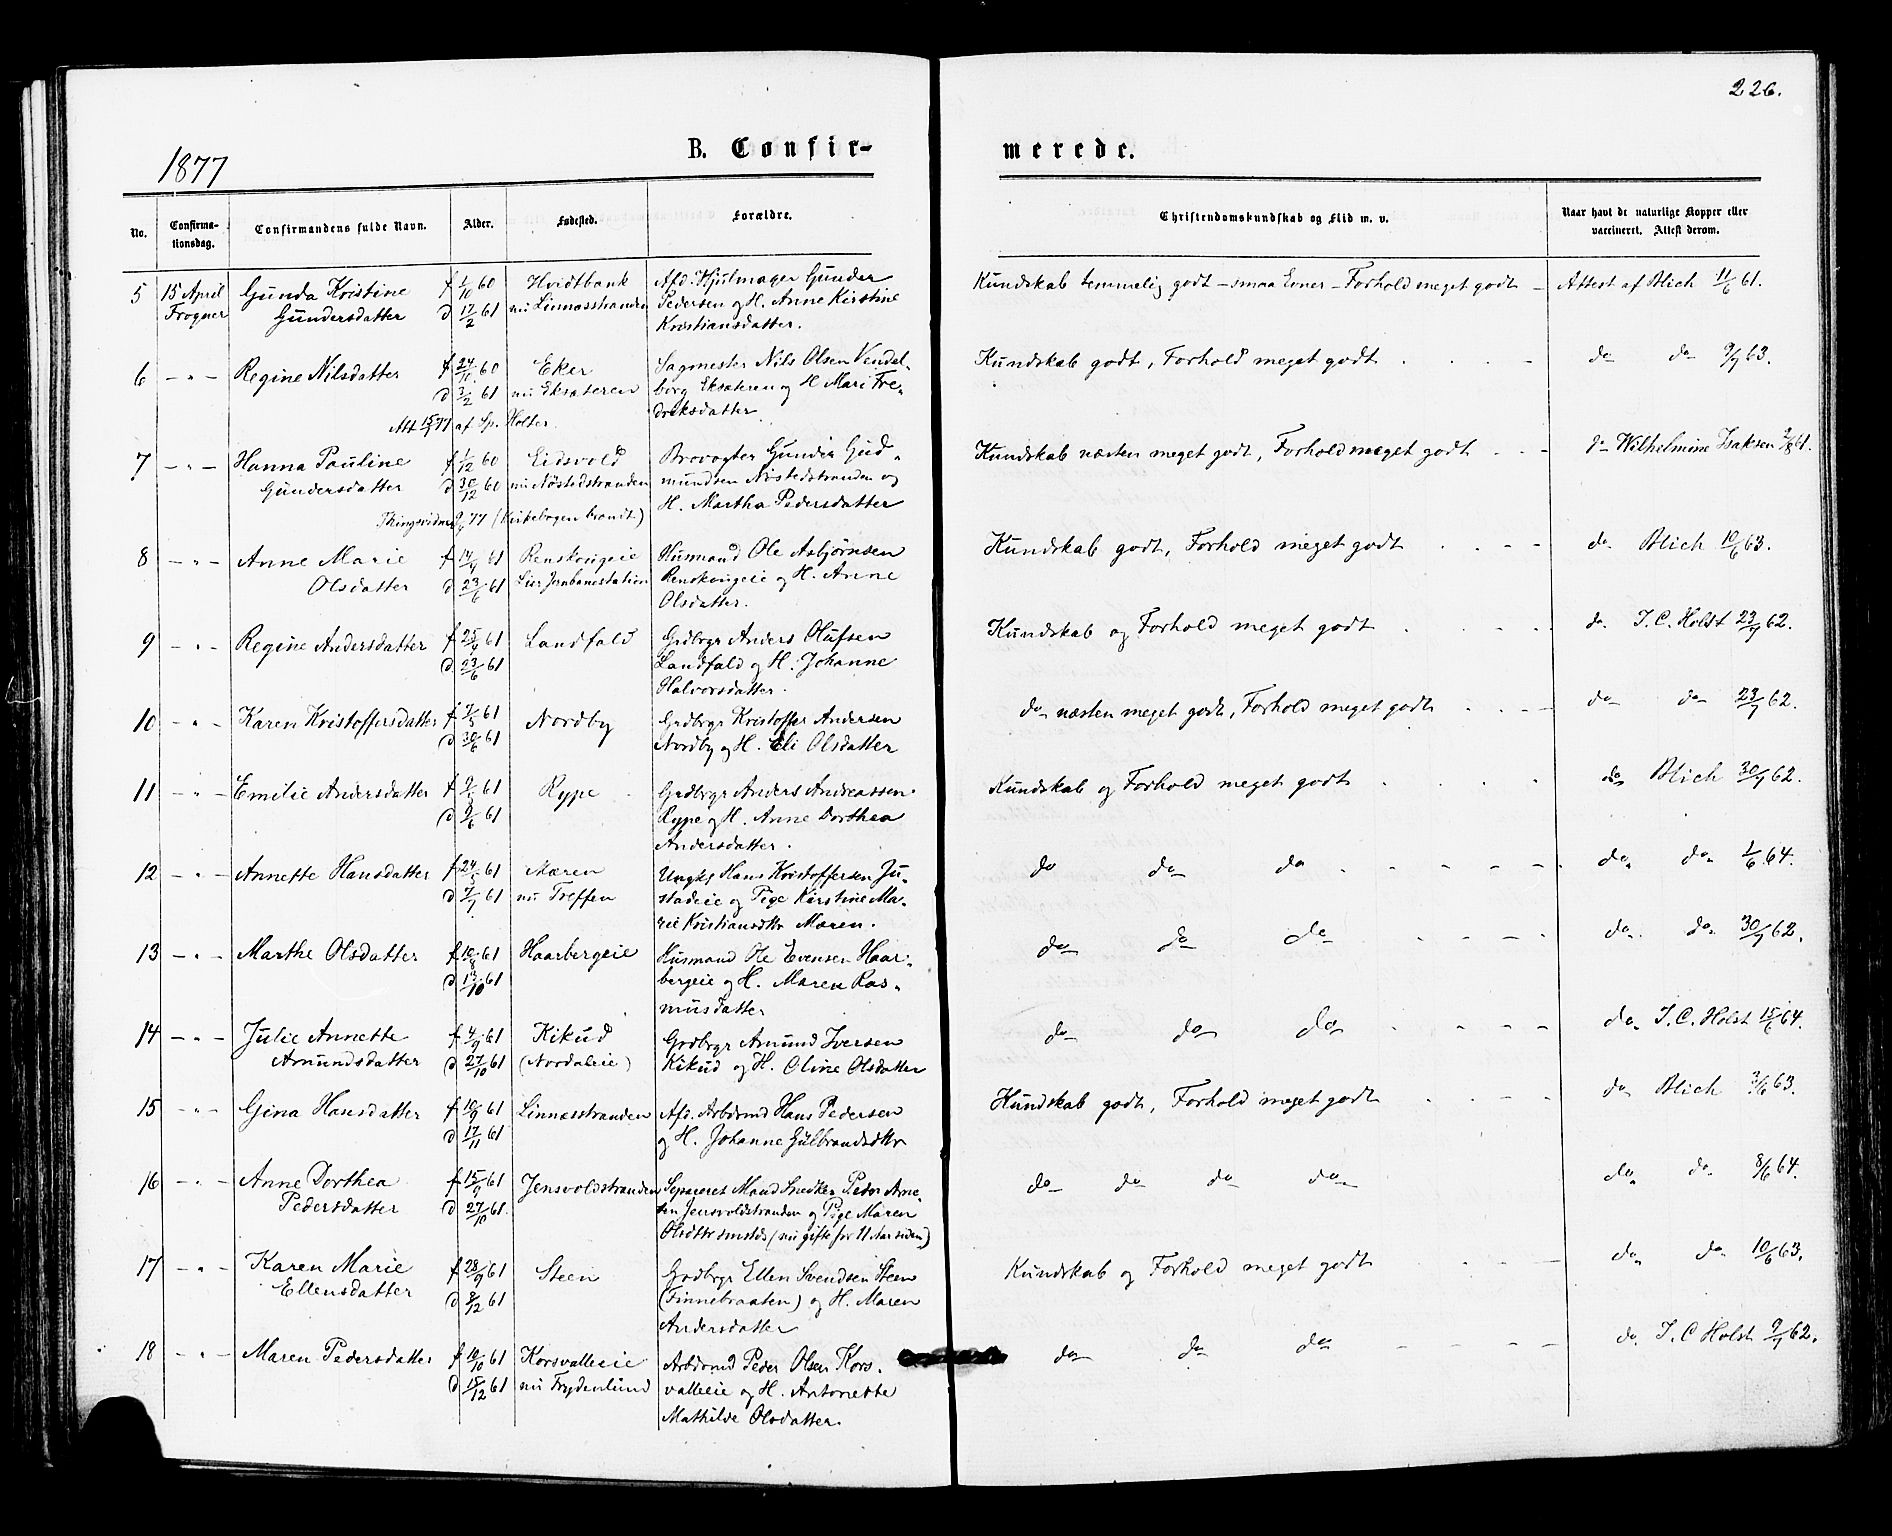 226.
1877
B. Confir- merede.
No. Confirma-tionsdag. Confirmandens fulde Navn. Alder. Fødested. Forældre. Christendomskundskab og Flid m. v. Naar havt de naturlige Kopper eller vaccineret. Attest derom.
5 15 April Gunda Kristine f 1/10 60 Hvidtbank Afd. Hjulmager Gunder Kundskab temmelig godt – smaa Evner – Forhold meget godt – Attest af Blich 11/6 61.
Frogner Gundersdatter d 17/2 61 nu Linnæsstranden Pedersen og H. Anne Kirstine
Kristiansdatter.
6 – " – Regine Nilsdatter f 24/11 60 Eker Sagmester Nils Olsen Vendel- Kundskab godt, Forhold meget godt do do 9/9 63.
d 3/2 61 nu Eksæteren borg Eksæteren og H Mari Fre-
Att 15/4 77 af Sp. Holter. driksdatter
7 – " – Hanna Pauline f 1/12 60 Eidsvold Brovogter Gunder Gud- Kundskab næsten meget godt, Forhold meget godt do Wilhelmine Isaksen 2/8 61.
Gundersdatter d 30/12 60 nu Nøstedstranden mundsen Nøstedstranden og
Thingsvidne 9/4 77 (Kirkebogen brændt) H. Martha Pedersdatter
8 – " – Anne Marie f 14/4 61 Renskougeie Husmand Ole Asbjørnsen Kundskab godt, Forhold meget godt do Blich 10/6 63.
Olsdatter d 23/6 61 Lier Jernbanestation Renskougeie og H. Anne
Olsdatter.
9 – " – Regine Andersdatter f 25/4 61 Landfald Grdbrgr Anders Olufsen Kundskab og Forhold meget godt do. I. C. Holst 23/9 62.
d. 23/6 61 Landfald og H. Johanne
Halvorsdatter.
10 – " – Karen Kristoffersdatter f 7/5 61 Nordby Grdbrgr Kristoffer Andersen do næsten meget godt, Forhold meget godt do do 23/7 62.
d 30/6 61 Nordby og H. Eli Olsdatter
11 – " – Emilie Andersdatter f 9/5 61 Rype Grdbrgr Anders Andreassen Kundskab og Forhold meget godt do Blich 30/9 62.
d 9/6 61 Rype og H. Anne Dorthea
Andersdatter.
12 – " – Annette Hansdatter f 24/5 61 Mæren Ungkl Hans Kristoffersen Ju- do do do do do 1/6 64.
d 7/7 61 nu Treffen stadeie og Pige Kirstine Ma-
rie Kristiansdtr Mæren.
13 – " – Marthe Olsdatter f 10/8 61 Haarbergeie Husmand Ole Evensen Haar- do do do do. do 30/9 62.
d 13/10 61 bergeie og H. Maren Ras-
musdatter
14 – " – Julie Annette f 4/9 61 Kikud Grdbrgr Amund Iversen do do do do I. C. Holst 15/6 64.
Amundsdatter d 27/10 61 (Nordaleie) Kikud og H. Oline Olsdatter
15 – " – Gina Hansdatter f 10/9 61 Linnæsstranden Afd. Arbdmd Hans Pedersen Kundskab godt, Forhold meget godt do Blich 3/6 63.
d 17/11 61 og H. Johanne Gulbrandsdtr
16 – " – Anne Dorthea f 15/9 61 Jensvoldstranden Separeret Mand Snedker Peder Arne- do do do do do do 8/6 64.
Pedersdatter d 27/10 61. sen Jensvoldstranden og Pige Maren
Olsdtr smstds (nu gifte for 11 Aar siden)
17 – " – Karen Marie f 28/9 61 Steen Grdbrgr Ellen Svendsen Steen Kundskab og Forhold meget godt do do 10/6 63.
Ellensdatter d 8/12 61 (Finnebraaten) og H. Maren
Andersdatter
18 – " – Maren Pedersdatter f 10/10 61 Korsvalleeie Arbdmd Peder Olsen Kors- do do do do. I. C Holst 9/7 62.
d 15/12 61 nu Frydenlund valleeie og H. Antonette
Mathilde Olsdatter.